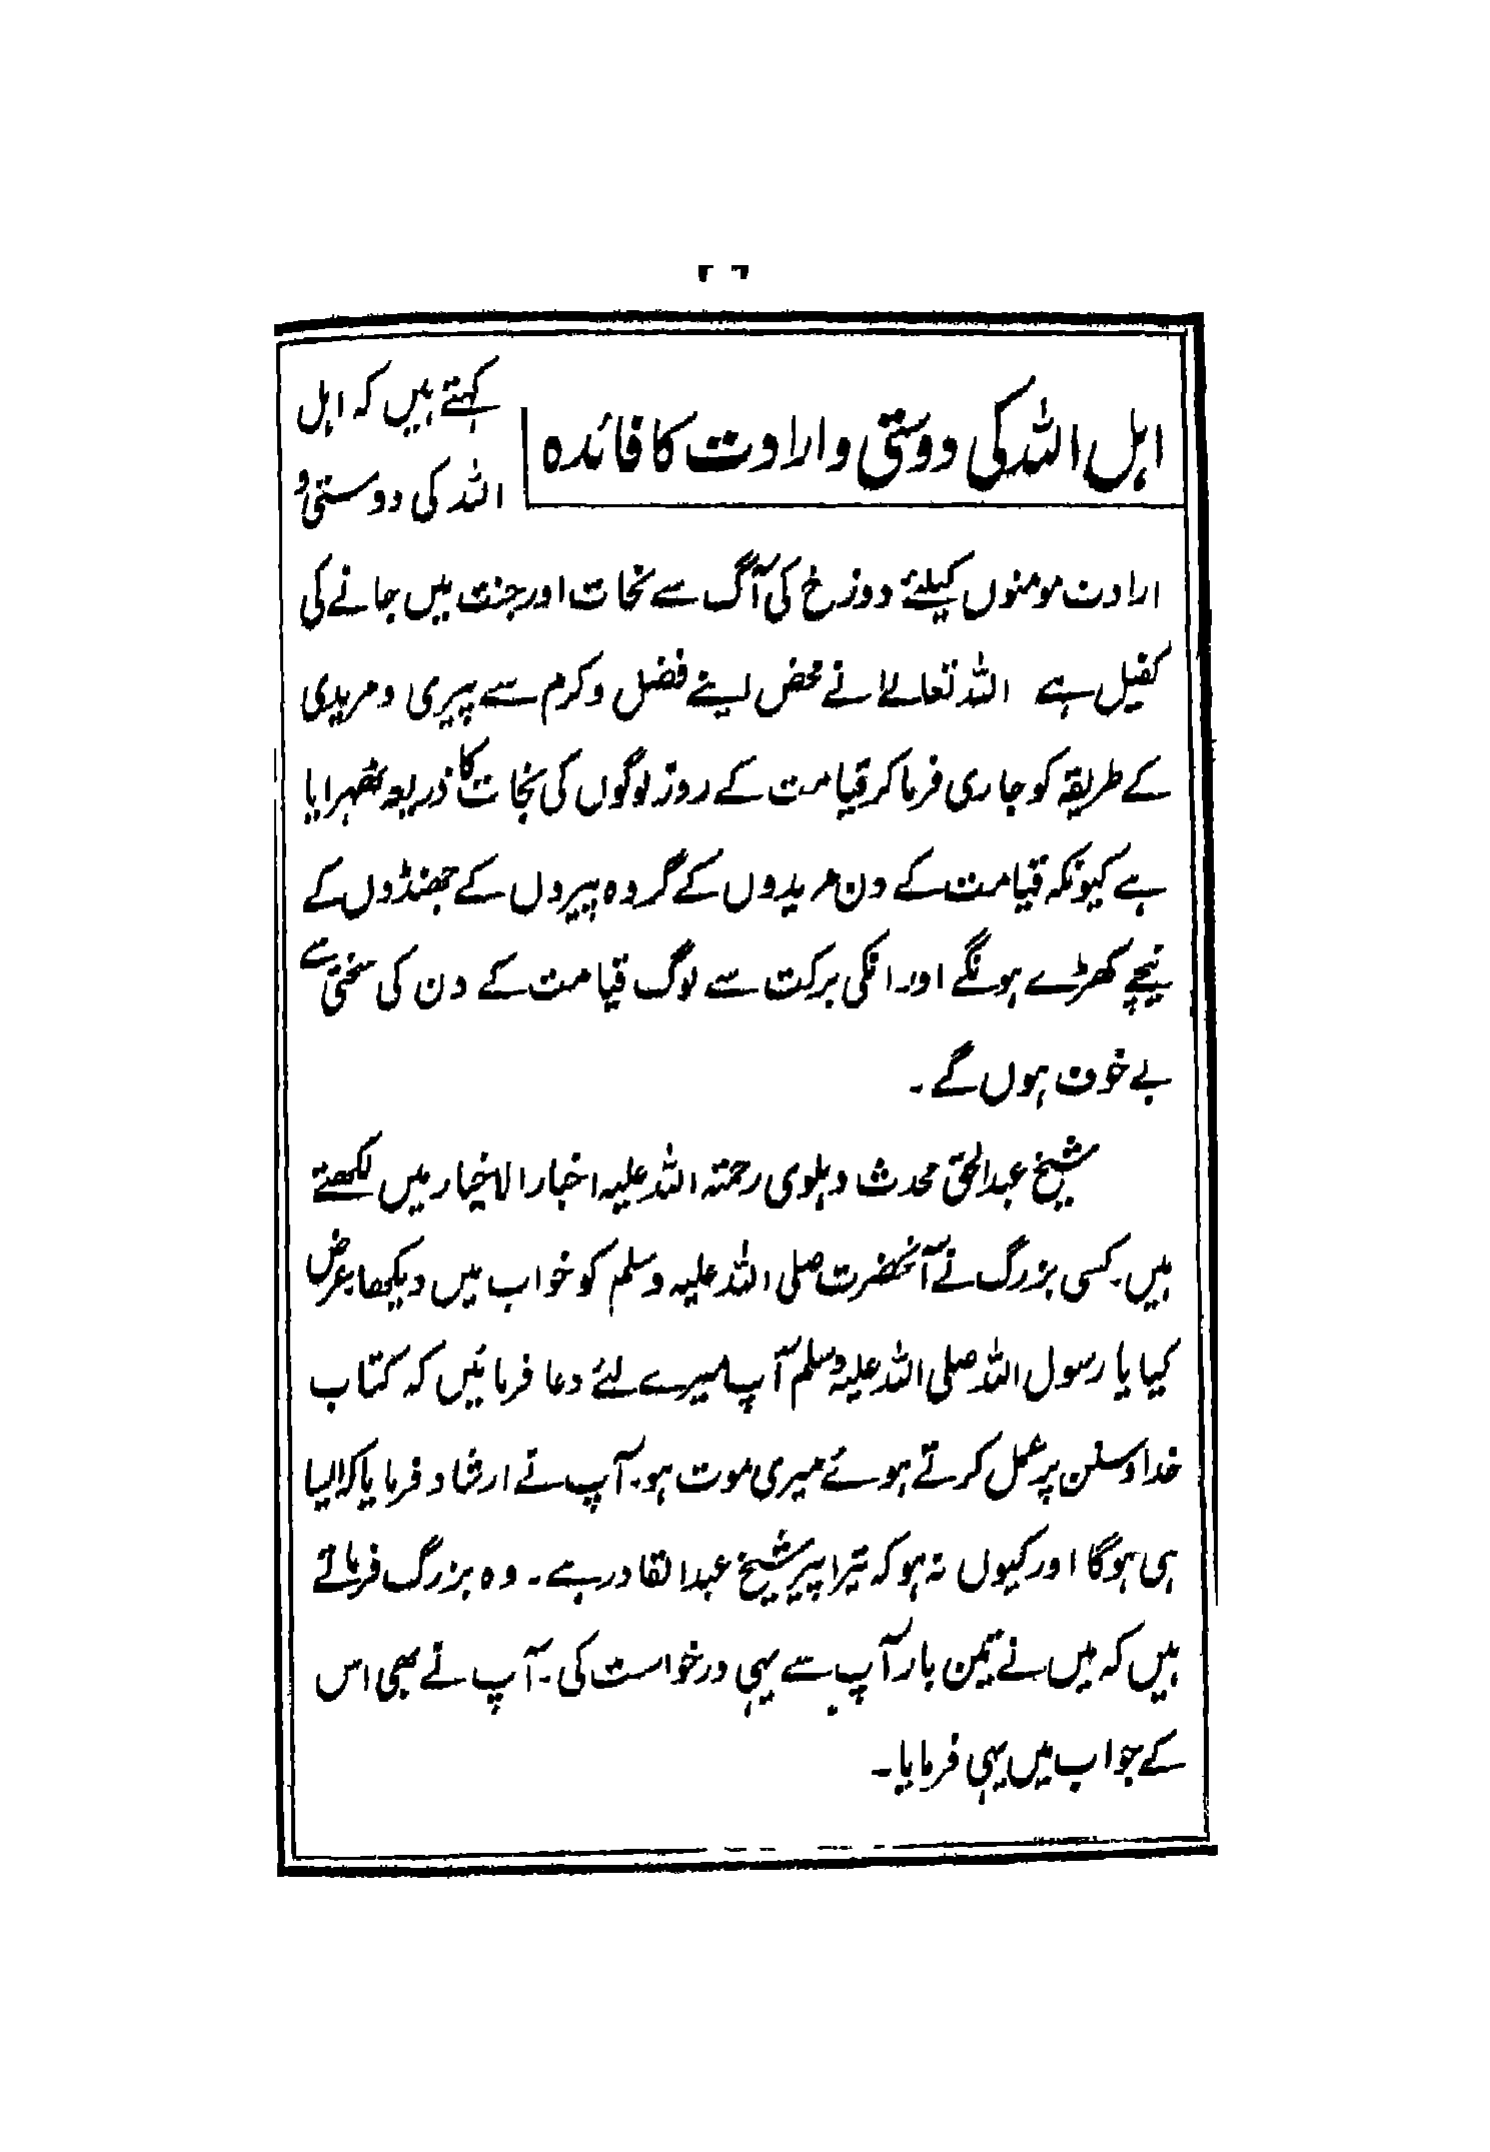 اہل اللہ کی دوستی وارادت کا فائدہ
کہتے ہیں کہ اہل
اللہ کی دوستی و
ارادت مومنوں کیلئے دوزخ کی آگ سے نجات اور جنت میں جانے کی
کفیل ہے اللہ تعالےٰ نے محض اپنے فضل وکرم سے پیری ومریدی
کے طریقہ کو جاری فرما کر قیامت کے روز لوگوں کی نجات کا ذریعہ ٹھہرایا
ہے کیونکہ قیامت کے دن مریدوں کے گروہ پیروں کے جھنڈوں کے
نیچے کھڑے ہونگے اور انکی برکت سے لوگ قیامت کے دن کی سختی سے
بے خوف ہوں گے۔
شیخ عبدالحق محدث دہلوی رحمتہ اللہ علیہ اخبار الاخیار میں لکھتے
ہیں۔ کسی بزرگ نے آنحضرت صلی اللہ علیہ وسلم کو خواب میں دیکھا، عرض
کیا یا رسول اللہ صلی اللہ علیہ وسلم آپ میرے لئے دعا فرمائیں کہ کتاب
خدا وسنن پر عمل کرتے ہوئے میری موت ہو۔ آپ نے ارشاد فرمایا کہ ایسا
ہی ہوگا اور کیوں نہ ہو کہ تیرا پیر شیخ عبدالقادر ہے۔ وہ بزرگ فرماتے
ہیں کہ میں نے تین بار آپ سے یہی درخواست کی۔ آپ نے بھی اس
کے جواب میں یہی فرمایا۔